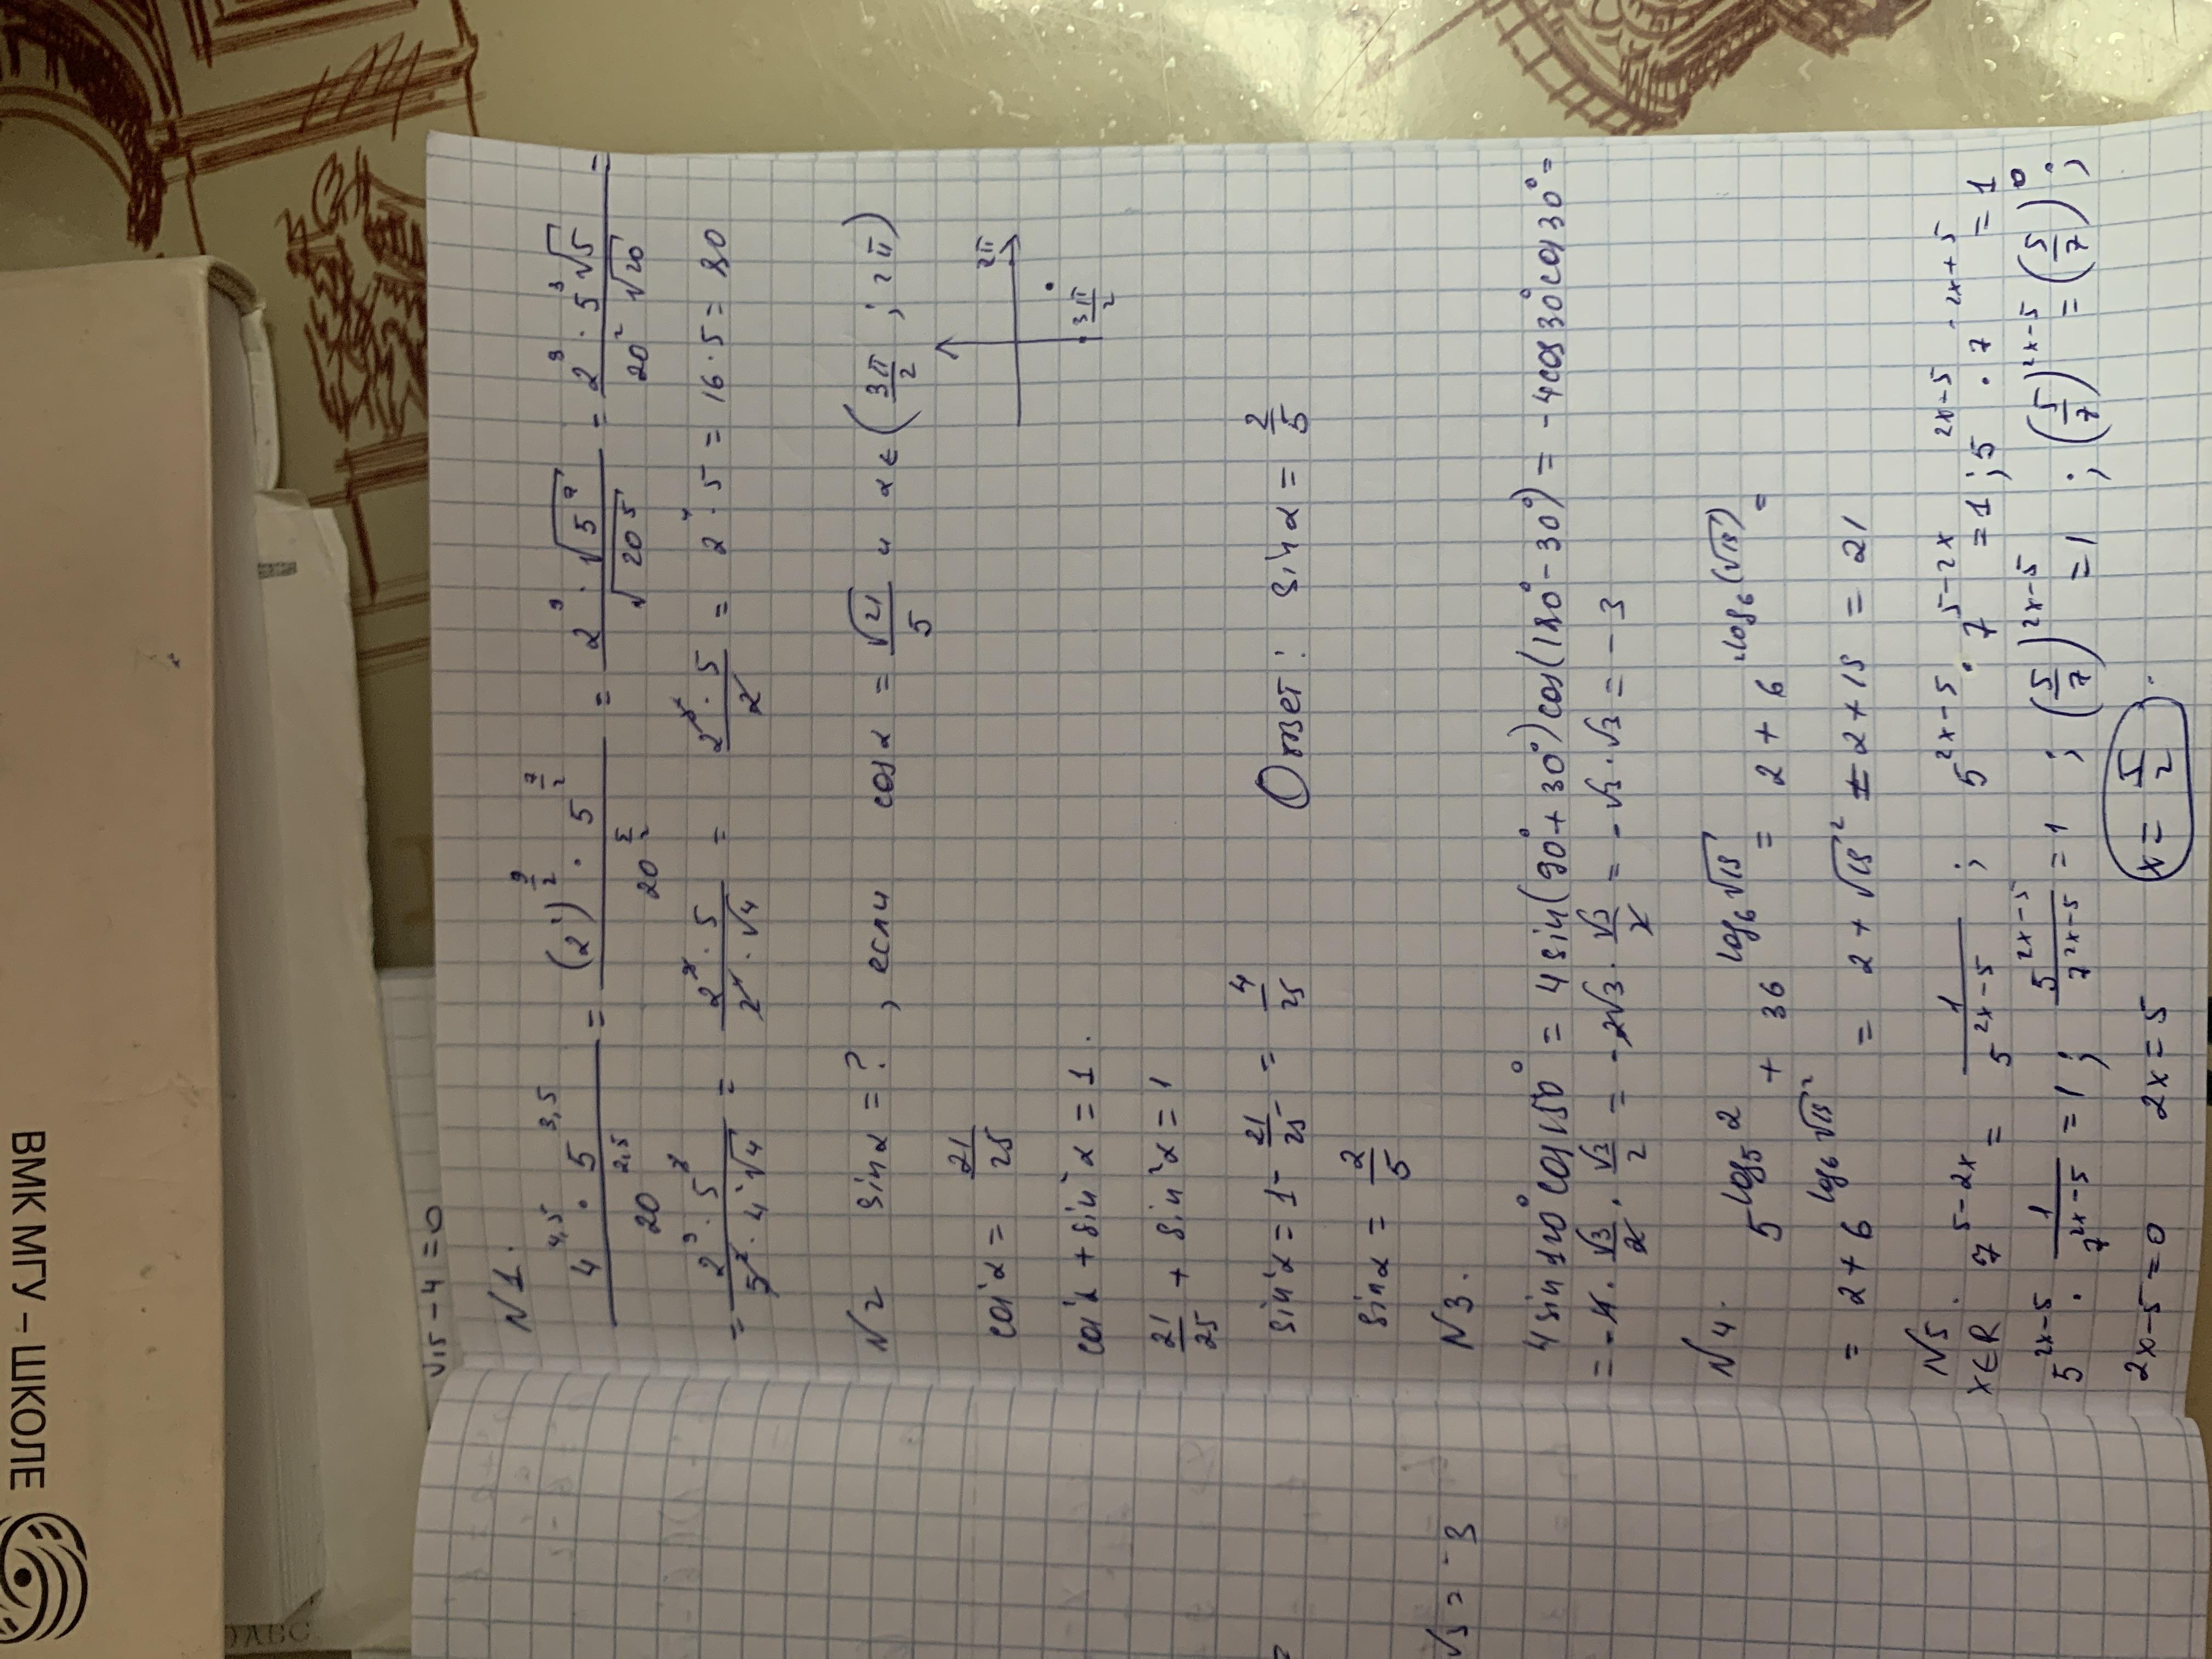 ВМК МГУ – ШКОЛЕ
√15 - 4 = 0
N1.
4^{4,5} · 5^{3,5} / 20^{2,5} = (2²)^{9/2} · 5^{7/2} / 20^{5/2} = 2⁹ · √5⁷ / √20⁵ = 2⁹ · 5³√5 / 20²√20 =
= 2⁹ · 5³ / 5² · 4²√4 = 2⁹ · 5 / 2⁴ · √4 = 2⁵ · 5 / 2 = 2⁴ · 5 = 16 · 5 = 80
N2 sinα = ? , если cosα = √21/5 и α ∈ (3π/2 ; 2π)
cos²α = 21/25
2π
3π/2
cos²α + sin²α = 1.
21/25 + sin²α = 1
sin²α = 1 - 21/25 = 4/25
Ответ: sinα = 2/5
sinα = 2/5
N3.
4sin120°cos150° = 4sin(90°+30°)cos(180°-30°) = -4cos30°cos30° =
= -4 · √3/2 · √3/2 = -2√3 · √3/2 = -√3 · √3 = -3
√3 = -3
N4. 5^{log₅2} + 36^{log₆√15} = 2 + 6^{2log₆(√15)} =
= 2 + 6^{log₆√15²} = 2 + √15² = 2 + 15 = 21
N5.
x∈R 7^{5-2x} = 1/5^{2x-5} ; 5^{2x-5} · 7^{5-2x} = 1; 5^{2x-5} · 7^{-2x+5} = 1
5^{2x-5} · 1/7^{2x-5} = 1; 5^{2x-5}/7^{2x-5} = 1 ; (5/7)^{2x-5} = 1 ; (5/7)^{2x-5} = (5/7)⁰ ;
2x-5=0 2x=5 x = 5/2 .